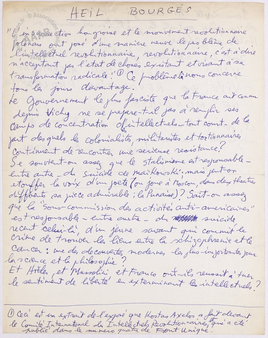 HEIL BOURGÈS
"L'insurrection hongroise et le mouvement révolutionnaire
polonais ont posé d'une manière neuve le problème de
l'intellectuel révolutionnaire, révolutionnaire, c'est à dire
n'acceptant pas l'état de choses existant et visant à sa
transformation radicale." ① Ce problème nous concerne
tous les jours davantage.
Le Gouvernement le plus fasciste que la France ait connu
depuis Vichy ne se prépare-t-il pas à remplir ses
camps de concentration d'intellectuels, tout comme
part des colonialistes, militaristes et tortionnaires
continuent de rencontrer une sérieuse résistance?
Se souvient-on assez que le stalinisme est responsable -
entre autre - du suicide de Maïakovski, mais peut-on
étouffer la voix d'un poète (on joue à Moscou, dans des théâtres
différents sa pièce admirable: la Punaise)? Sait-on assez
que la Sous-commission des activités anti-américaines
est responsable - entre autre - du suicide
récent celui-là, d'un jeune savant qui commit le
crime de trouver des liens entre la schizophrénie et le
cancer: une des découvertes modernes les plus importantes pour
la science et la philosophie?
Et Hitler et Mussolini et Franco ont-ils réussi à tuer
le sentiment de liberté en exterminant les intellectuels?
① Ceci est un extrait de l'exposé que Kostas Axelos a fait devant
le Comité International des Intellectuels Révolutionnaires, qui a été
publié dans le numéro gratis de Front Unique.